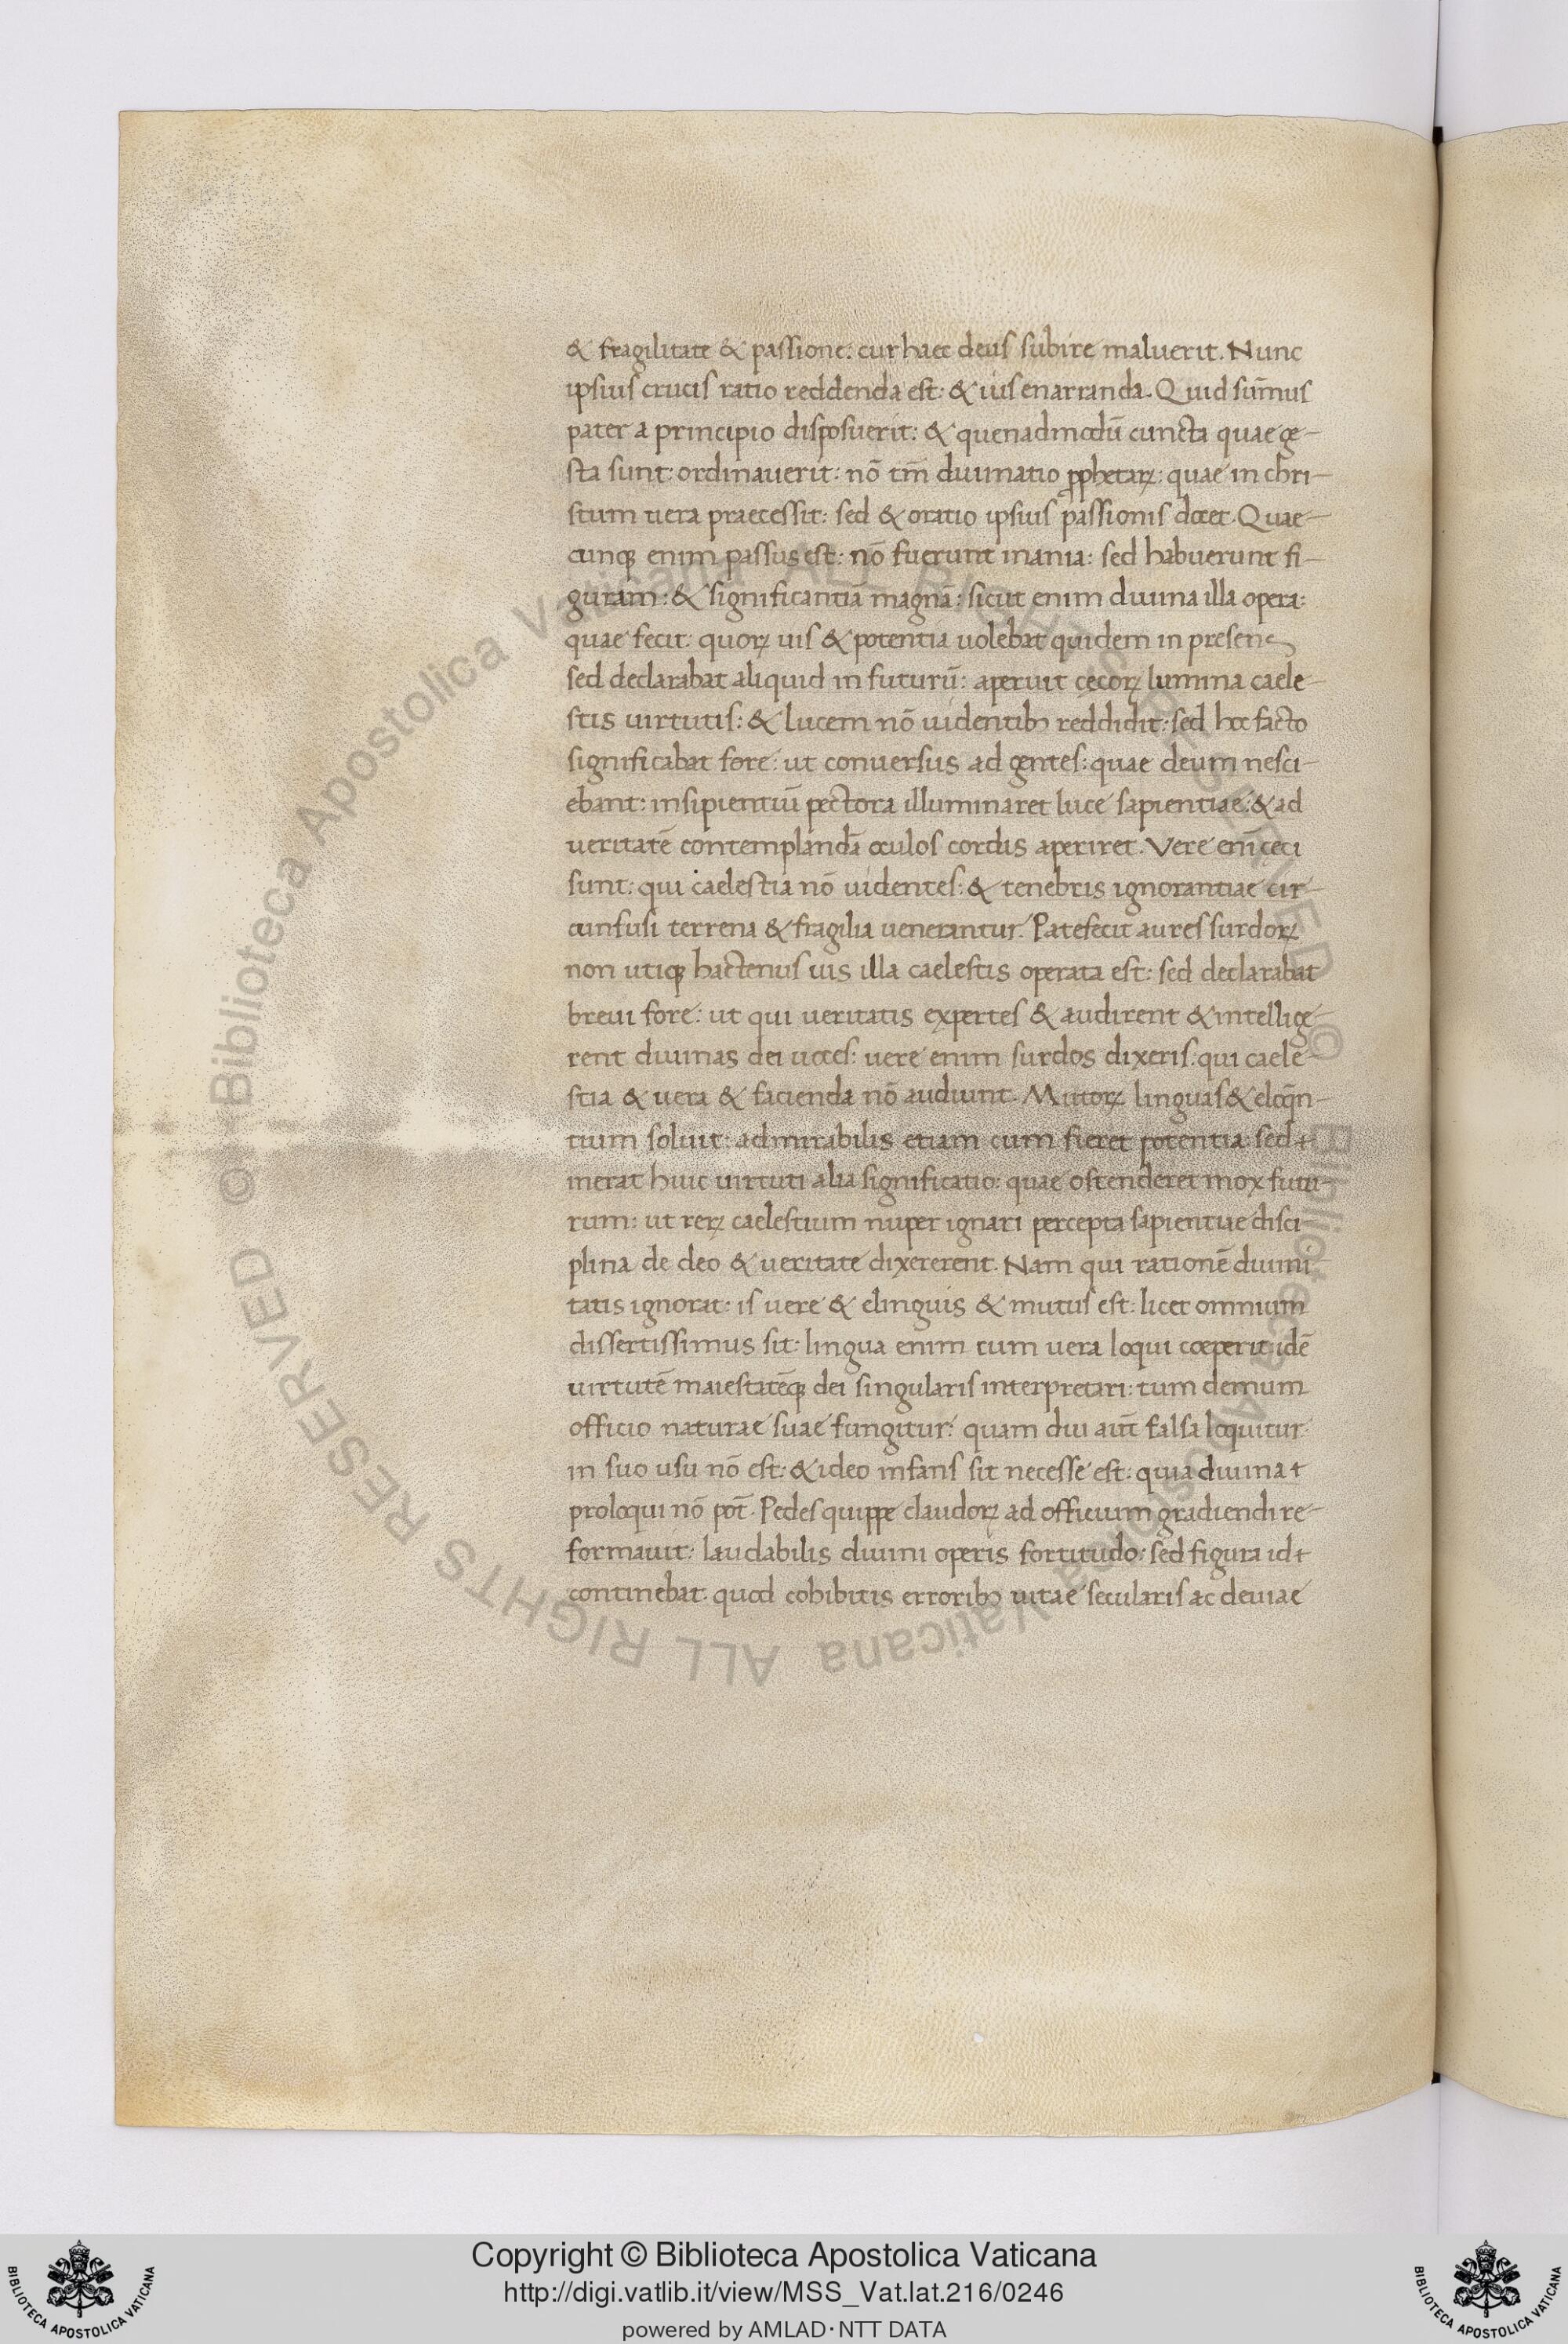 & fragilitate & passione: cur haec deus subire maluerit. Nunc
ipsius crucis ratio reddenda est: & uis enarranda. Quid sum̄us
pater a principio disposuerit: & quenadmodū cuncta quae ge-
sta sunt: ordinauerit: nō tm̄ diuinatio ꝓphetaꝝ: quae in chri-
stum uera praecessit: sed & oratio ipsius passionis docet. Quae-
cunqꝫ enim passus est: nō fuerunt inania: sed habuerunt fi-
guram: & significantiā magnā: sicut enim diuina illa opera:
quae fecit: quoꝝ uis & potentia uolebat quidem in presens
sed declarabat aliquid in futurū: aperuit cęcoꝝ lumina caele-
stis uirtutis: & lucem nō uidentibꝫ reddidit: sed hoc facto
significabat fore: ut conuersus ad gentes: quae deum nesci-
ebant: insipientiū pectora illuminaret luce sapientiae: & ad
ueritatē contemplandā oculos cordis aperiret. Vere enī ceci
sunt: qui caelestia nō uidentes: & tenebris ignorantiae cir-
cunfusi terrena & fragilia uenerantur. Patefecit aures surdoꝝ
non utiqꝫ hactenus uis illa caelestis operata est: sed declarabat
breui fore: ut qui ueritatis expertes & audirent & intellige-
rent diuinas dei uoces: uere enim surdos dixeris: qui caele-
stia & uera & facienda nō audiunt. Mutoꝝ linguas & eloqn̄-
tium soluit: admirabilis etiam cum fieret potentia: sed +
inerat huic uirtuti alia significatio: quae ostenderet mox futu-
rum: ut reꝝ caelestium nuper ignari percepta sapientiae disci-
plina de deo & ueritate dixererent. Nam qui rationē diuini
tatis ignorat: is uere & elinguis & mutus est: licet omnium
dissertissimus sit: lingua enim cum uera loqui coeperit: idē
uirtutē maiestatēqꝫ dei singularis interpretari: tum demum
officio naturae suae fungitur: quam diu aut̄ falsa loquitur
in suo usu nō est: & ideo infans sit necesse est: quia diuina +
proloqui nō pot̄. Pedes quippe claudoꝝ ad officium gradiendi re-
formauit: laudabilis diuini operis fortitudo: sed figura id +
continebat. quod cohibitis erroribꝫ uitae secularis ac deuiae
© Biblioteca Apostolica Vaticana ALL RIGHTS RESERVED
© Biblioteca Apostolica Vaticana ALL RIGHTS RESERVED
Copyright © Biblioteca Apostolica Vaticana
http://digi.vatlib.it/view/MSS_Vat.lat.216/0246
powered by AMLAD·NTT DATA
BIBLIOTECA APOSTOLICA VATICANA
BIBLIOTECA APOSTOLICA VATICANA